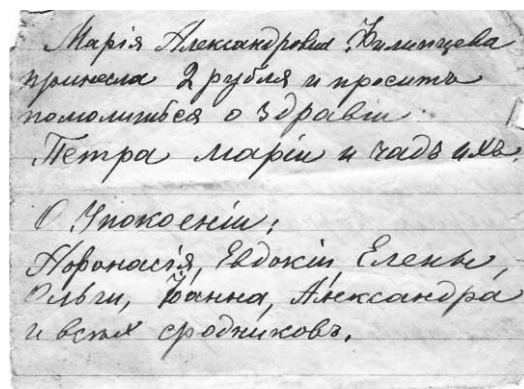 Марія Александровна Филипцева
принесла 2 рубля и проситъ
помолиться о Здравіи
Петра маріи и чадъ ихъ.
О Упокоеніи:
Афонасія, Евдокіи, Елены,
Ольги, Іоанна, Александра
и всѣх сродниковъ.